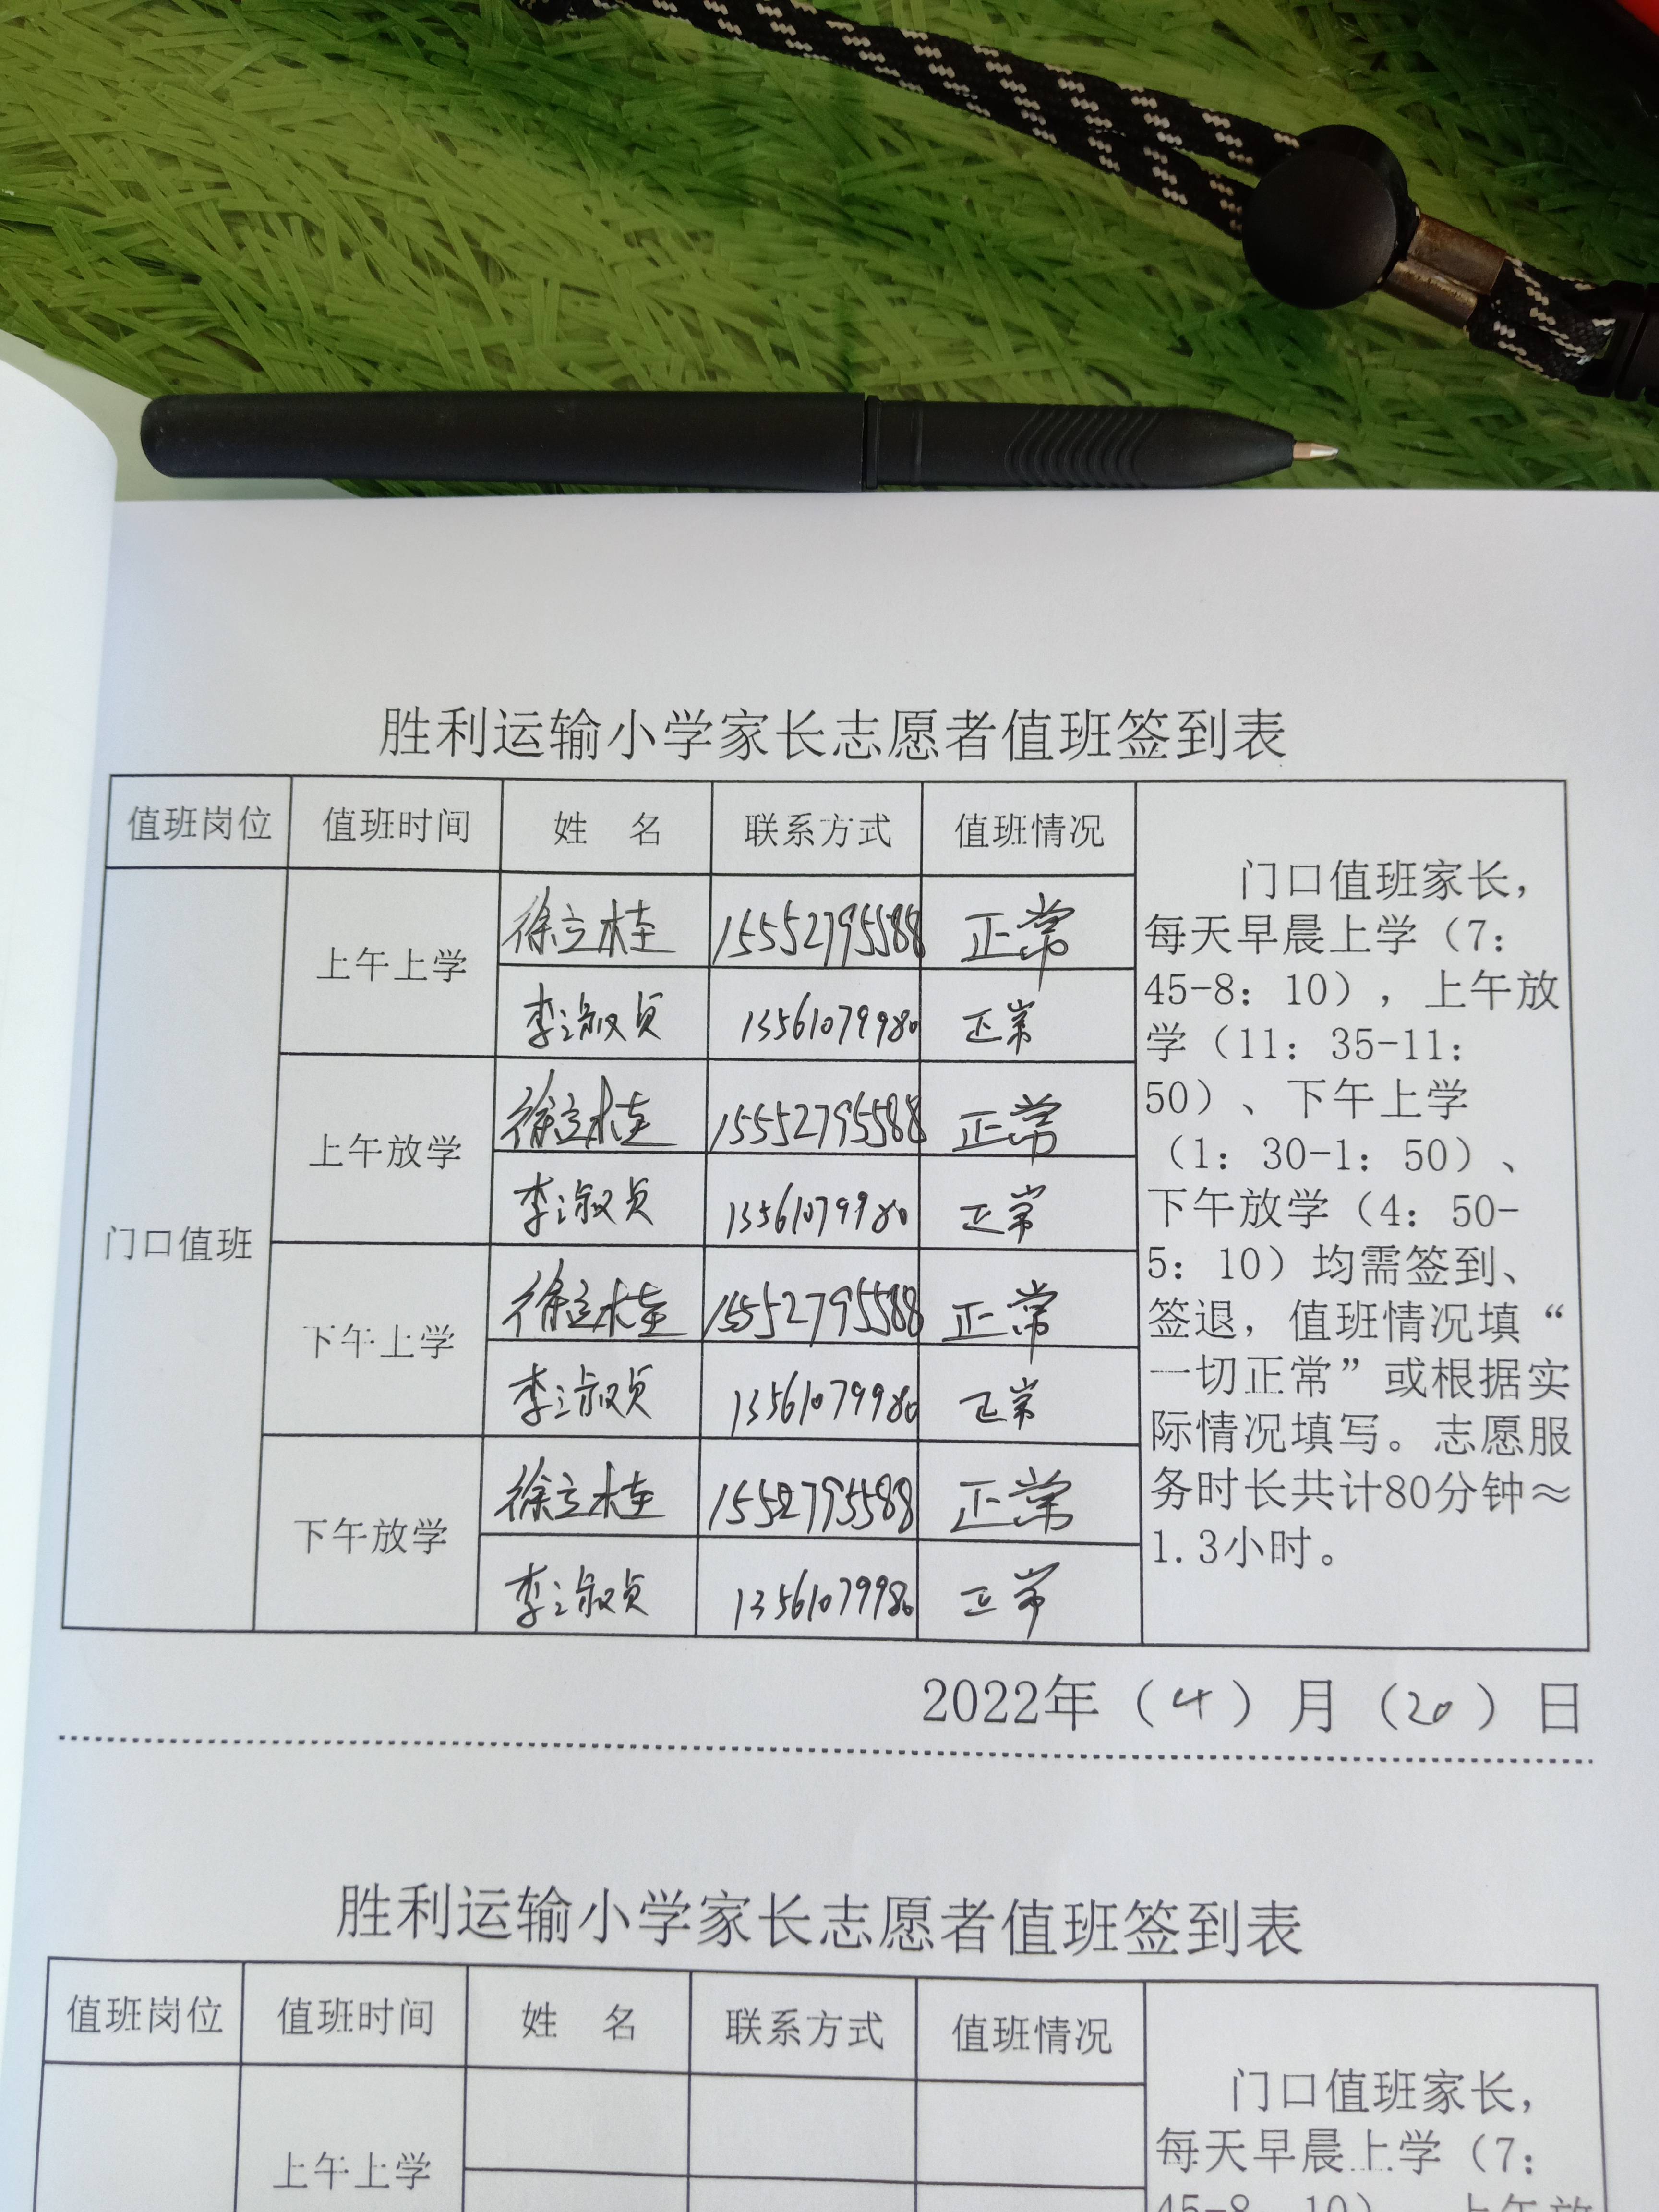 胜利运输小学家长志愿者值班签到表
值班岗位 值班时间 姓 名 联系方式 值班情况
门口值班
上午上学
徐立桂 15552795588 正常
李淑贞 13561079980 正常
上午放学
徐立桂 15552795588 正常
李淑贞 13561079980 正常
下午上学
徐立桂 15552795588 正常
李淑贞 13561079980 正常
下午放学
徐立桂 15552795588 正常
李淑贞 13561079980 正常
门口值班家长，
每天早晨上学（7：
45-8：10），上午放
学（11：35-11：
50）、下午上学
（1：30-1：50）、
下午放学（4：50-
5：10）均需签到、
签退，值班情况填“
一切正常”或根据实
际情况填写。志愿服
务时长共计80分钟≈
1.3小时。
2022年（4）月（20）日
胜利运输小学家长志愿者值班签到表
值班岗位 值班时间 姓 名 联系方式 值班情况
上午上学
门口值班家长，
每天早晨上学（7：
45-8：10），上午放